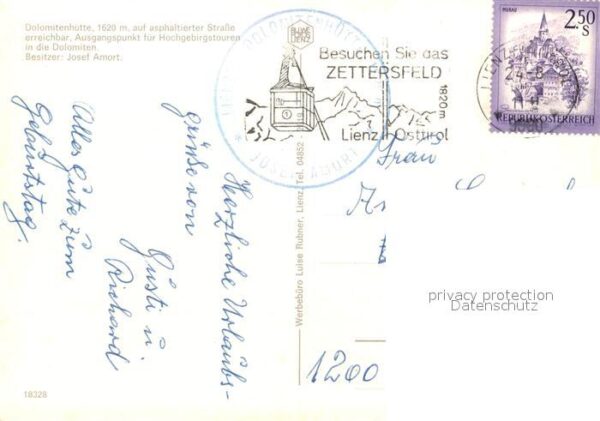 Dolomitenhütte, 1620 m, auf asphaltierter Straße
erreichbar, Ausgangspunkt für Hochgebirgstouren
in die Dolomiten.
Besitzer: Josef Amort.
Besuchen Sie das
ZETTERSFELD
1820 m
Lienz Osttirol
JOSEF AMORT
MURAU
2.50
S
REPUBLIK ÖSTERREICH
LIENZ
9900
Herzliche Urlaubs-
grüße von
Gusti u.
Richard
Alles Gute zum
Geburtstag.
Werbebüro Luise Rubner, Lienz, Tel. 04852
Frau
1200
privacy protection
Datenschutz
18328